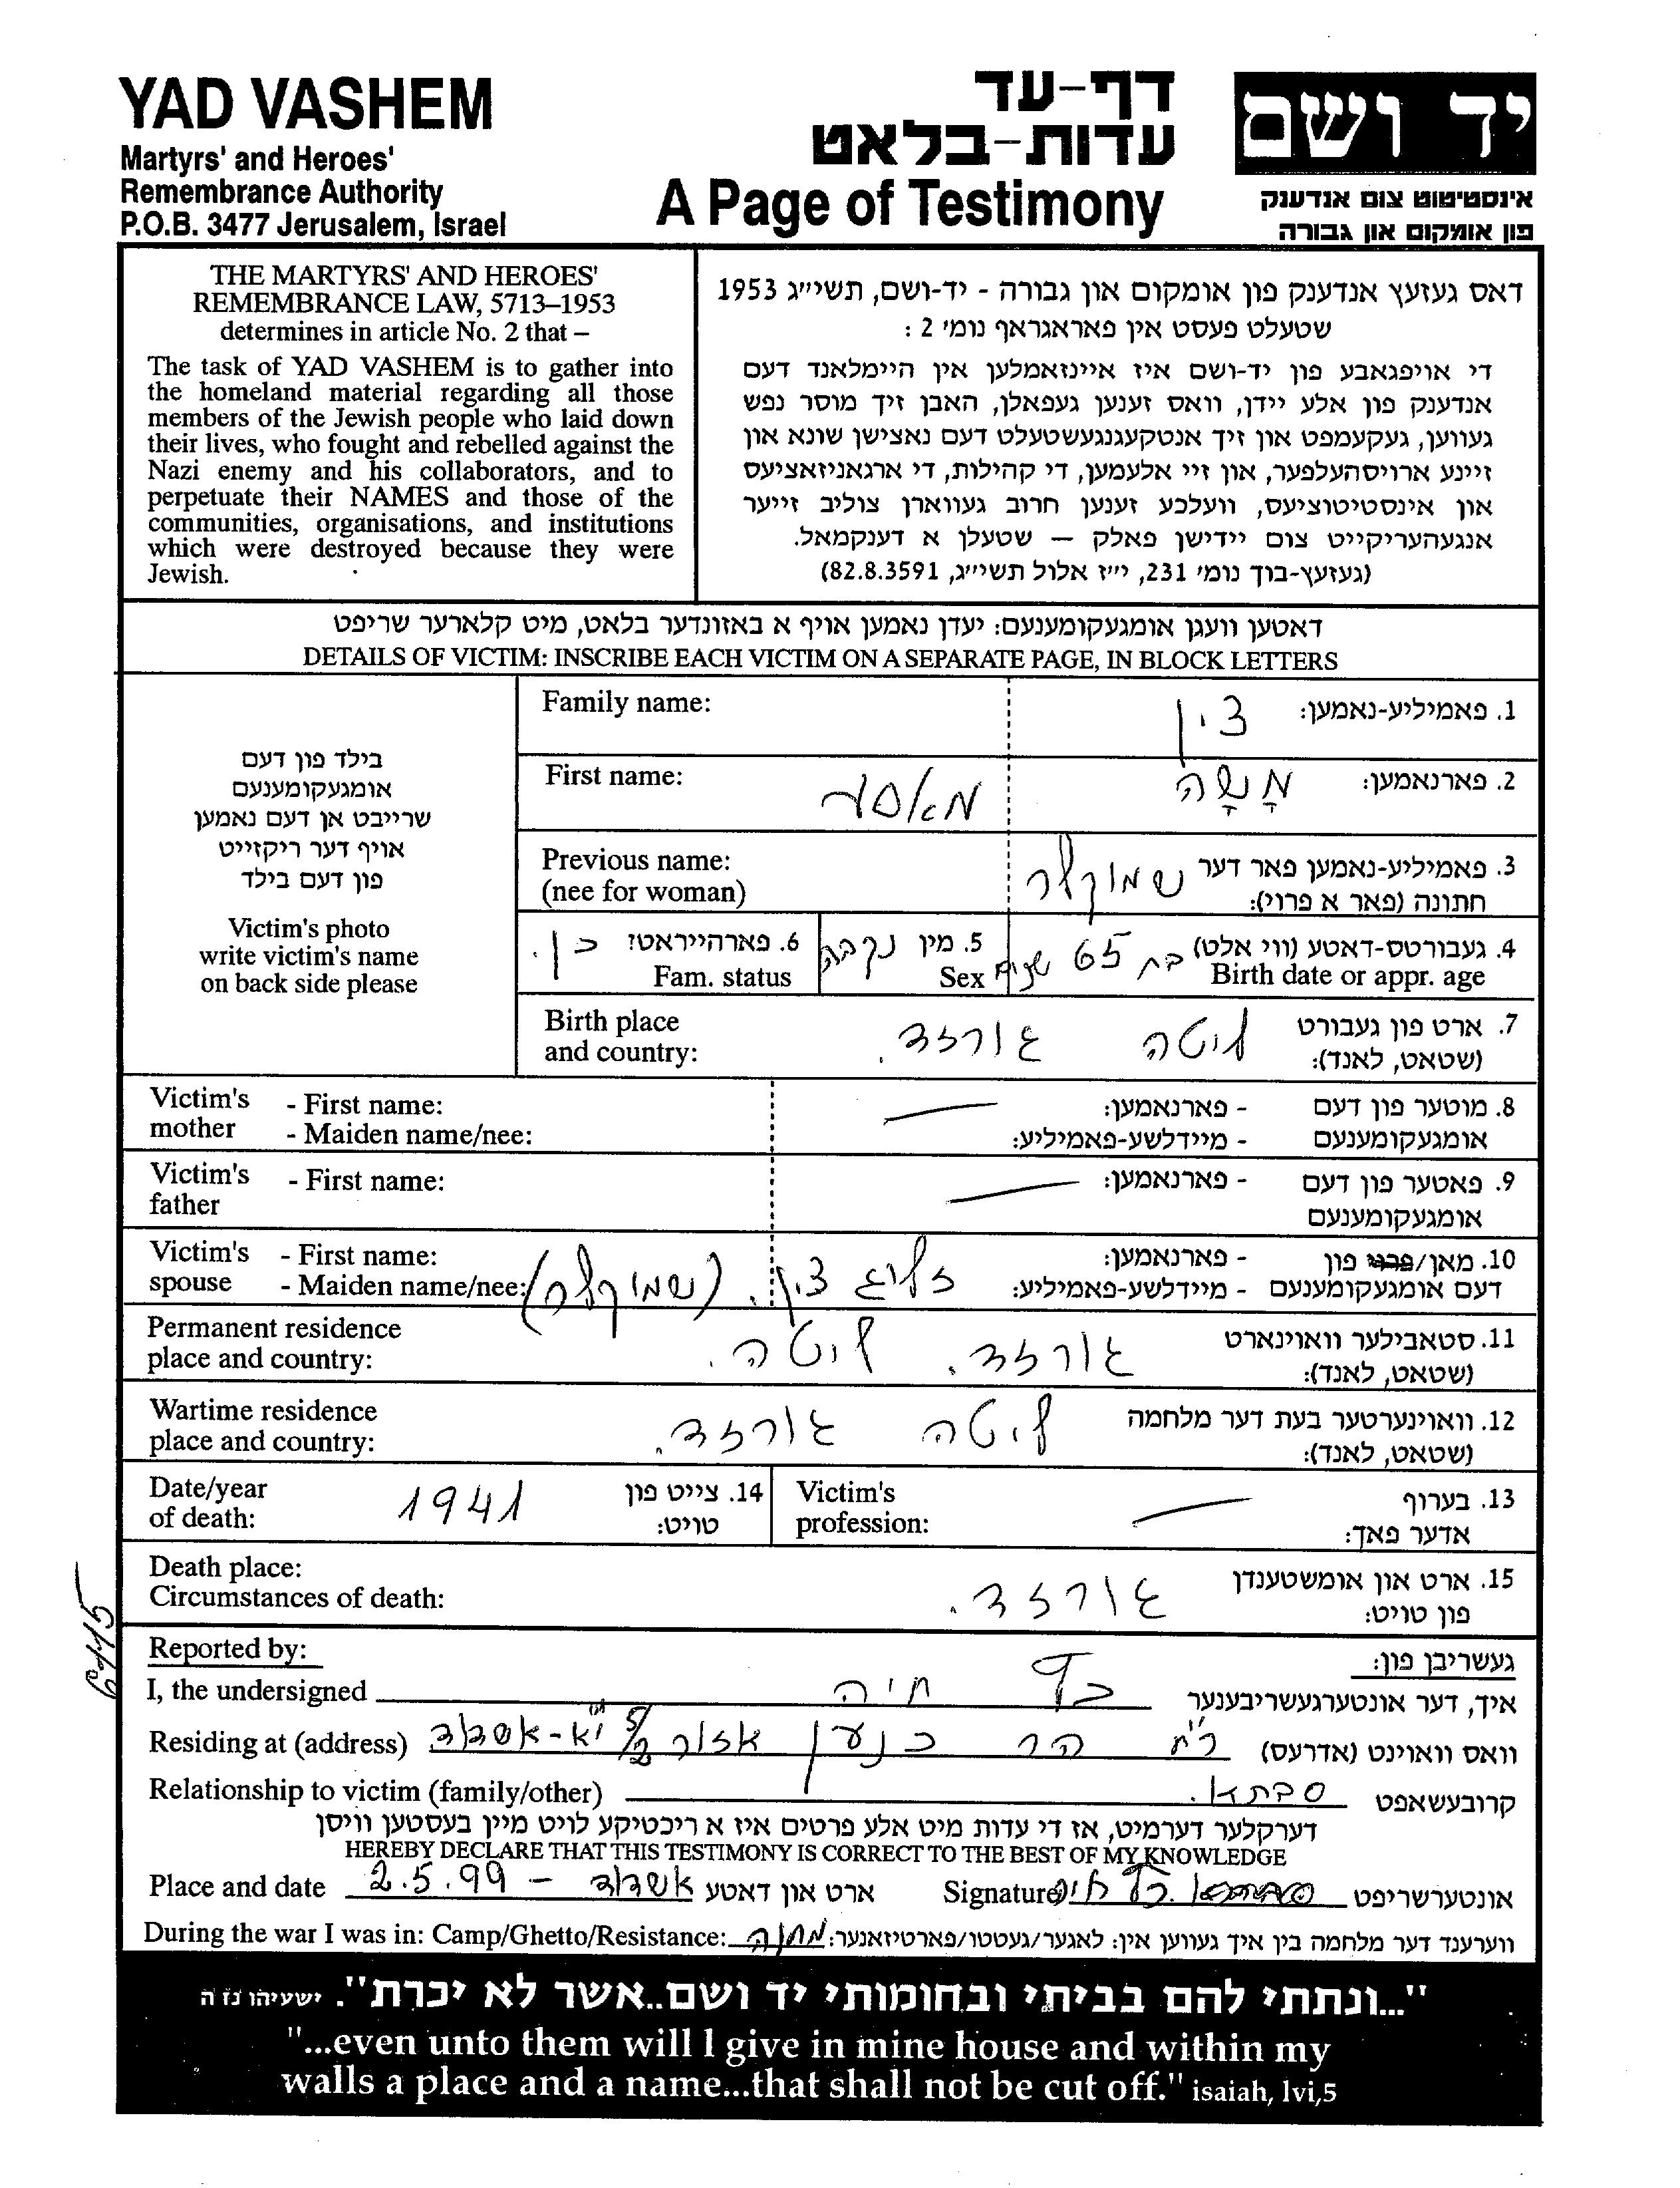 YAD VASHEM
Martyrs' and Heroes'
Remembrance Authority
P.O.B. 3477 Jerusalem, Israel
דף-עד
עדות-בלאט
A Page of Testimony
יד ושם
אינסטיטוט צום אנדענק
פון אומקום און גבורה
THE MARTYRS' AND HEROES'
REMEMBRANCE LAW, 5713–1953
determines in article No. 2 that –
The task of YAD VASHEM is to gather into
the homeland material regarding all those
members of the Jewish people who laid down
their lives, who fought and rebelled against the
Nazi enemy and his collaborators, and to
perpetuate their NAMES and those of the
communities, organisations, and institutions
which were destroyed because they were
Jewish.
דאס געזעץ אנדענק פון אומקום און גבורה - יד-ושם, תשי״ג 1953
שטעלט פעסט אין פאראגראף נומ׳ 2 :
די אויפגאבע פון יד-ושם איז איינזאמלען אין היימלאנד דעם
אנדענק פון אלע יידן, וואס זענען געפאלן, האבן זיך מוסר נפש
געווען, געקעמפט און זיך אנטקעגנגעשטעלט דעם נאצישן שונא און
זיינע ארויסהעלפער, און זיי אלעמען, די קהילות, די ארגאניזאציעס
און אינסטיטוציעס, וועלכע זענען חרוב געווארן צוליב זייער
אנגעהעריקייט צום יידישן פאלק — שטעלן א דענקמאל.
(געזעץ-בוך נומ׳ 231, י״ז אלול תשי״ג, 82.8.3591)
דאטען וועגן אומגעקומענעם: יעדן נאמען אויף א באזונדער בלאט, מיט קלארער שריפט
DETAILS OF VICTIM: INSCRIBE EACH VICTIM ON A SEPARATE PAGE, IN BLOCK LETTERS
בילד פון דעם
אומגעקומענעם
שרייבט אן דעם נאמען
אויף דער ריקזייט
פון דעם בילד
Victim's photo
write victim's name
on back side please
Family name: צין 1. פאמיליע-נאמען:
First name: מאסה מָשָה 2. פארנאמען:
Previous name: שמוקלר 3. פאמיליע-נאמען פאר דער
(nee for woman) חתונה (פאר א פרוי):
4. געבורטס-דאטע (ווי אלט) בת 65 שנים
Birth date or appr. age
5. מין נקבה
Sex
6. פארהייראט? כן.
Fam. status
Birth place ליטה גורזד. 7. ארט פון געבורט
and country: (שטאט, לאנד):
Victim's - First name: - פארנאמען: 8. מוטער פון דעם
mother - Maiden name/nee: - מיידלשע-פאמיליע: אומגעקומענעם
Victim's - First name: - פארנאמען: 9. פאטער פון דעם
father אומגעקומענעם
Victim's - First name: זליג צין. (שמוקלר) - פארנאמען: 10. מאן/פרוי פון
spouse - Maiden name/nee: - מיידלשע-פאמיליע: דעם אומגעקומענעם
Permanent residence גורזד. ליטה. 11. סטאבילער וואוינארט
place and country: (שטאט, לאנד):
Wartime residence ליטה גורזד. 12. וואוינערטער בעת דער מלחמה
place and country: (שטאט, לאנד):
Date/year 1941 14. צייט פון
of death: טויט:
Victim's 13. בערוף
profession: אדער פאך:
Death place: גורזד. 15. ארט און אומשטענדן
Circumstances of death: פון טויט:
Reported by: געשריבן פון:
I, the undersigned כץ חיה איך, דער אונטערגעשריבענער
Residing at (address) רח' הר כנען אזור י"א - אשדוד וואס וואוינט (אדרעס)
Relationship to victim (family/other) סבתא. קרובעשאפט
דערקלער דערמיט, אז די עדות מיט אלע פרטים איז א ריכטיקע לויט מיין בעסטען וויסן
HEREBY DECLARE THAT THIS TESTIMONY IS CORRECT TO THE BEST OF MY KNOWLEDGE
Place and date 2.5.99 - אשדוד ארט און דאטע Signature כץ חיה אונטערשריפט
During the war I was in: Camp/Ghetto/Resistance: מחנה ווערענד דער מלחמה בין איך געווען אין: לאגער/געטטו/פארטיזאנער:
"...ונתתי להם בביתי ובחומותי יד ושם..אשר לא יכרת". ישעיהו נו ה
"...even unto them will I give in mine house and within my
walls a place and a name...that shall not be cut off." isaiah, lvi,5